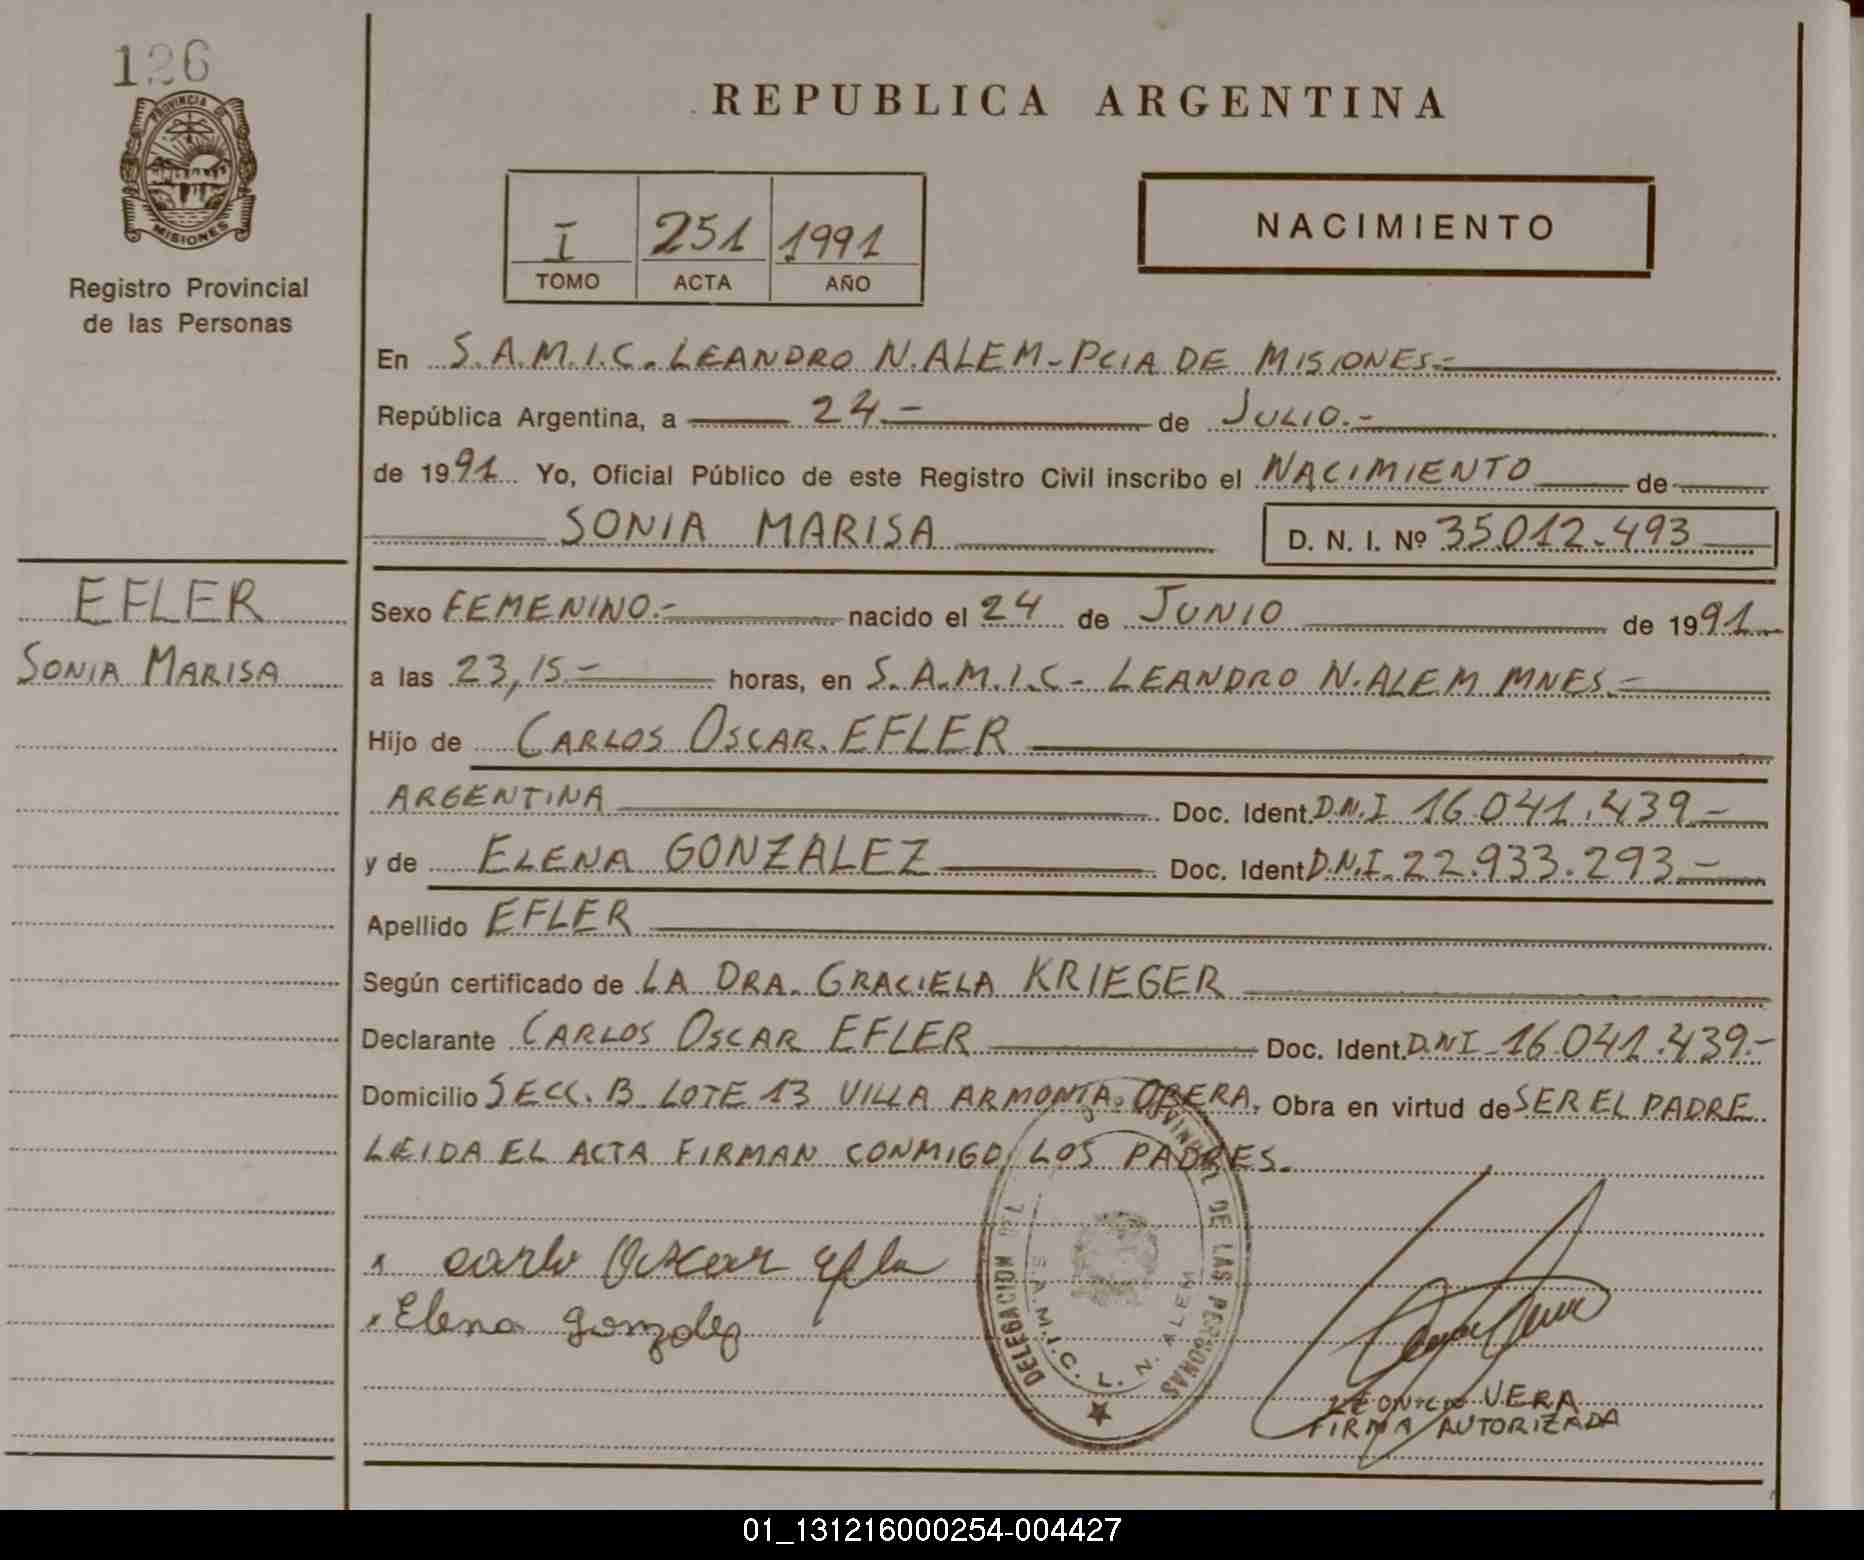 126
PROVINCIA DE
MISIONES
Registro Provincial
de las Personas
EFLER
SONIA MARISA
REPUBLICA ARGENTINA
I 251 1991
TOMO ACTA AÑO
NACIMIENTO
En S.A.M.I.C. LEANDRO N. ALEM - PCIA DE MISIONES.-
República Argentina, a 24.- de JULIO.-
de 1991 Yo, Oficial Público de este Registro Civil inscribo el NACIMIENTO de
SONIA MARISA D. N. I. Nº 35.012.493
Sexo FEMENINO.- nacido el 24 de JUNIO de 1991
a las 23,15.- horas, en S.A.M.I.C- LEANDRO N. ALEM MNES.-
Hijo de CARLOS OSCAR EFLER
ARGENTINA Doc. Ident. D.N.I 16.041.439.-
y de ELENA GONZALEZ Doc. Ident D.N.I. 22.933.293.-
Apellido EFLER
Según certificado de LA DRA. GRACIELA KRIEGER
Declarante CARLOS OSCAR EFLER Doc. Ident. D.N.I 16.041.439.-
Domicilio SECC. B LOTE 13 VILLA ARMONIA. OBERA. Obra en virtud de SER EL PADRE
LEIDA EL ACTA FIRMAN CONMIGO, LOS PADRES.
Oscar
Elena Gonzalez
DE LAS PERSONAS
DELEGACION
S.A.M.I.C. L. N. ALEM
VERA
FIRMA AUTORIZADA
01_131216000254-004427